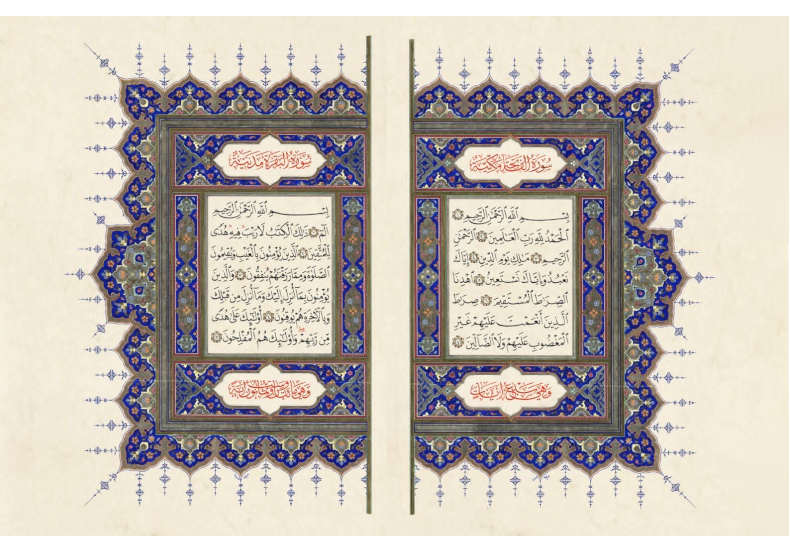 سورة الفاتحة مكية
بِسْمِ اللَّهِ الرَّحْمَٰنِ الرَّحِيمِ
الْحَمْدُ لِلَّهِ رَبِّ الْعَالَمِينَ الرَّحْمَٰنِ
الرَّحِيمِ مَالِكِ يَوْمِ الدِّينِ إِيَّاكَ
نَعْبُدُ وَإِيَّاكَ نَسْتَعِينُ اهْدِنَا
الصِّرَاطَ الْمُسْتَقِيمَ صِرَاطَ
الَّذِينَ أَنْعَمْتَ عَلَيْهِمْ غَيْرِ
الْمَغْضُوبِ عَلَيْهِمْ وَلَا الضَّالِّينَ
وهي سبع آيات
سورة البقرة مدنية
بِسْمِ اللَّهِ الرَّحْمَٰنِ الرَّحِيمِ
الم ذَٰلِكَ الْكِتَابُ لَا رَيْبَ فِيهِ هُدًى
لِلْمُتَّقِينَ الَّذِينَ يُؤْمِنُونَ بِالْغَيْبِ وَيُقِيمُونَ
الصَّلَوٰةَ وَمِمَّا رَزَقْنَاهُمْ يُنْفِقُونَ وَالَّذِينَ
يُؤْمِنُونَ بِمَا أُنْزِلَ إِلَيْكَ وَمَا أُنْزِلَ مِنْ قَبْلِكَ
وَبِالْآخِرَةِ هُمْ يُوقِنُونَ أُولَٰئِكَ عَلَىٰ هُدًى
مِنْ رَبِّهِمْ وَأُولَٰئِكَ هُمُ الْمُفْلِحُونَ